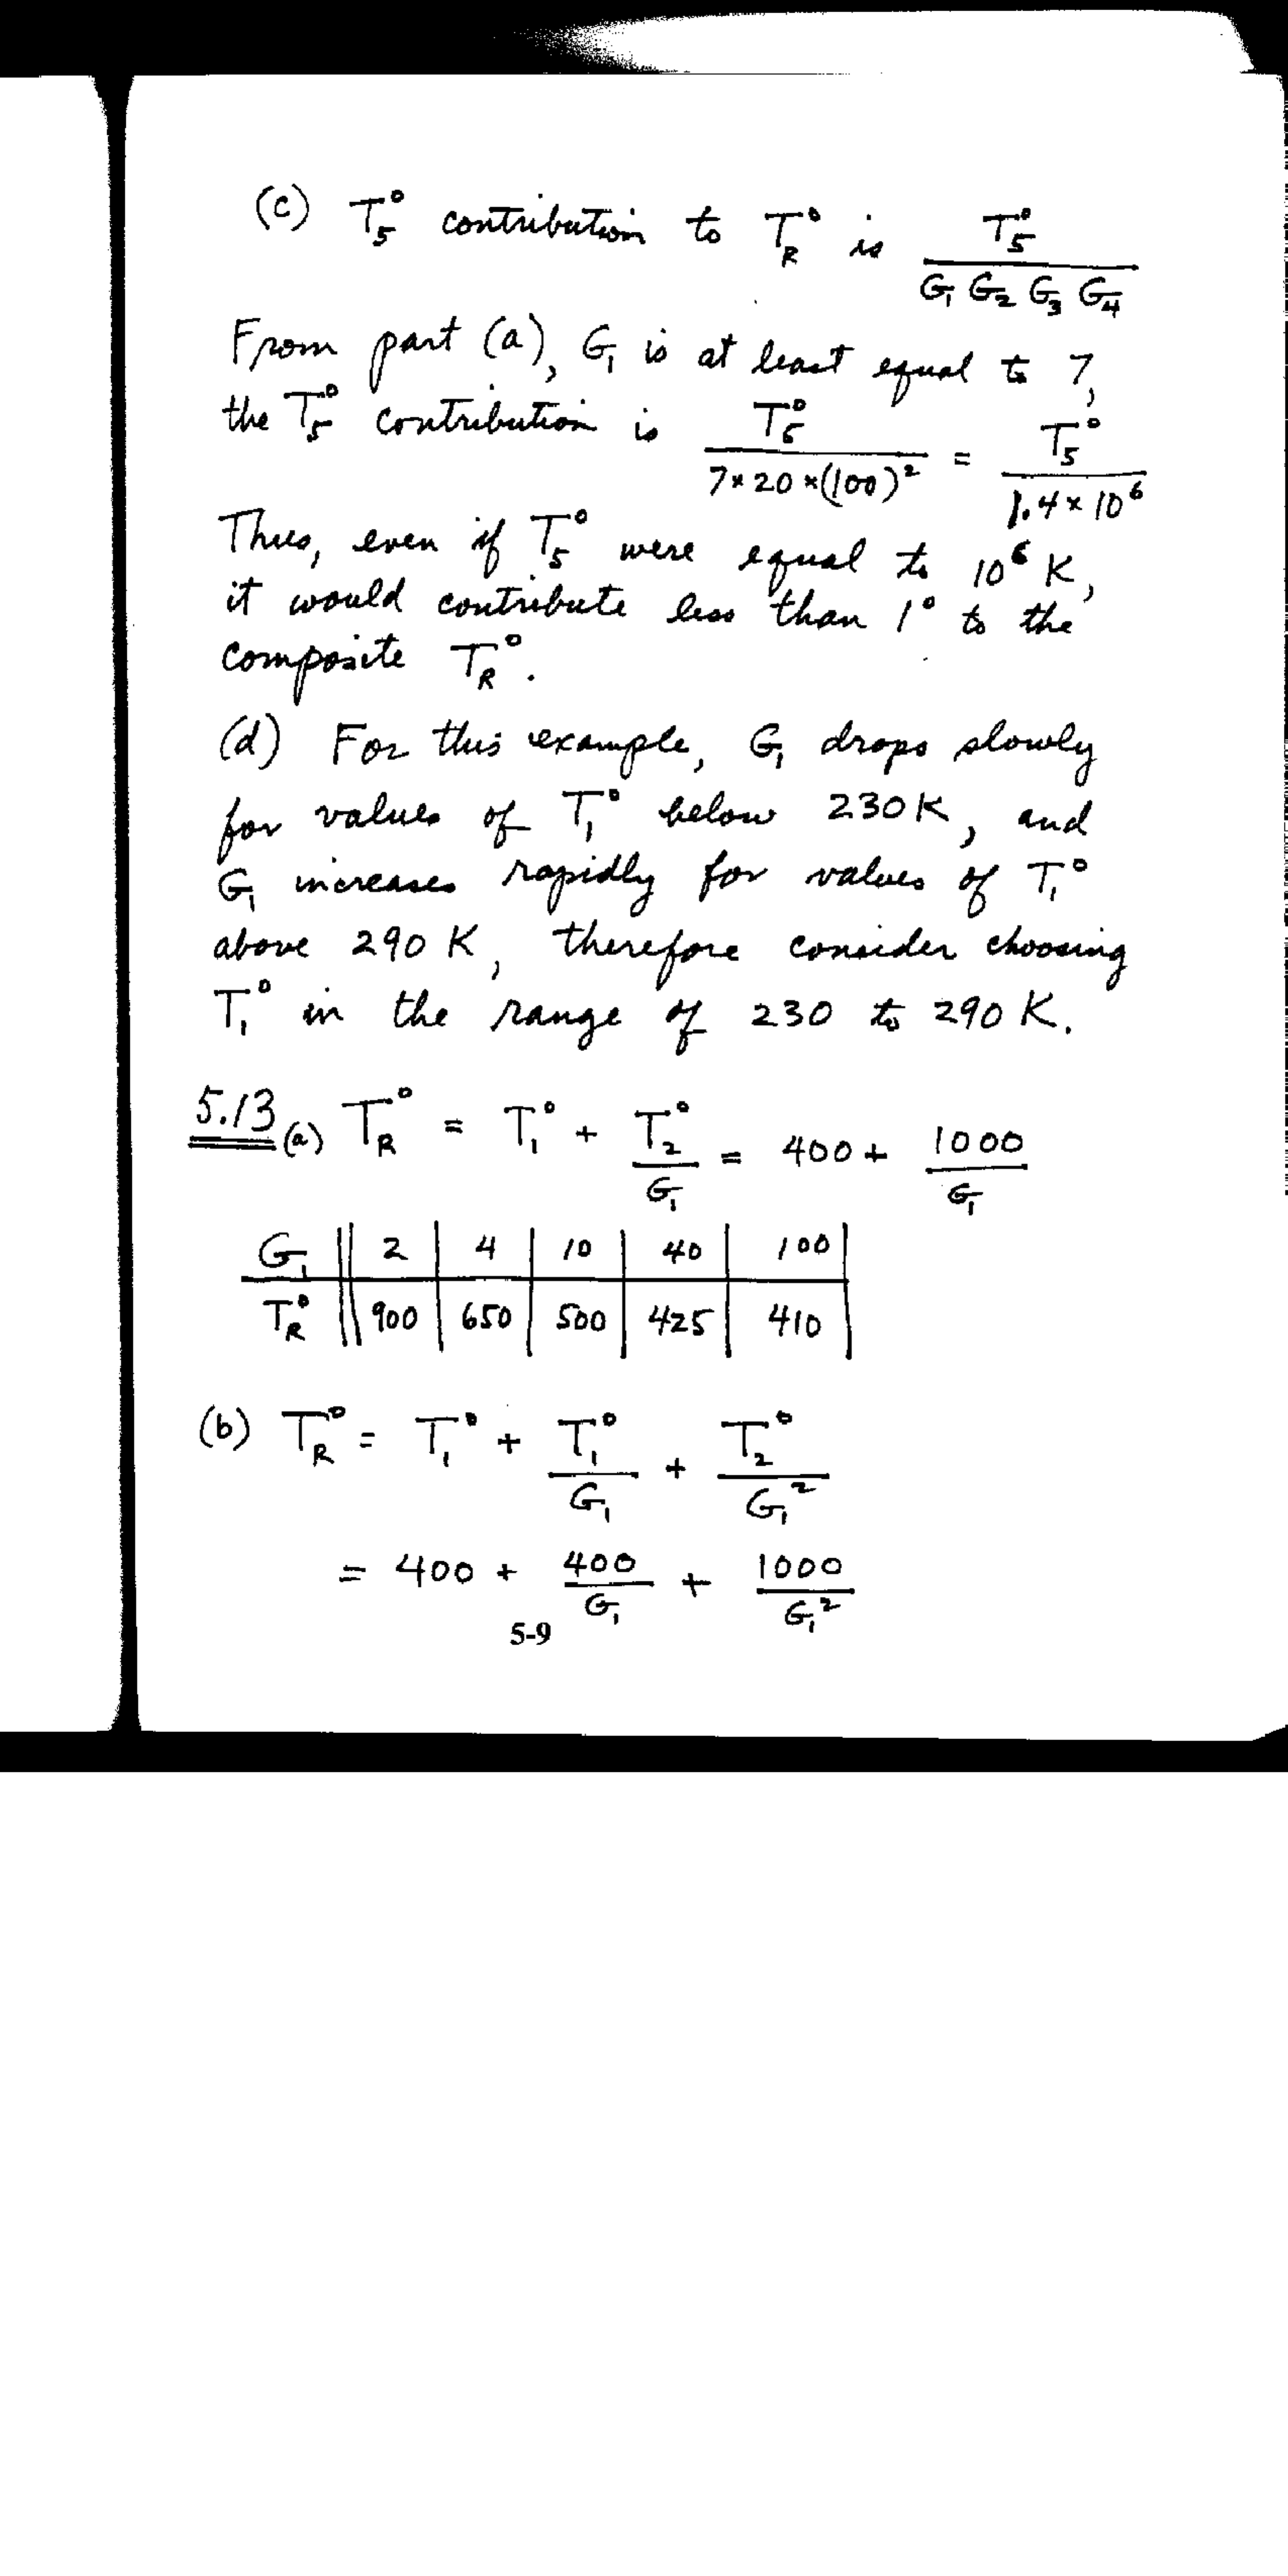 (c) T₅° contribution to T_R° is T₅° / (G₁ G₂ G₃ G₄)
From part (a), G₁ is at least equal to 7,
the T₅° contribution is T₅° / (7×20×(100)²) = T₅° / (1.4×10⁶)
Thus, even if T₅° were equal to 10⁶ K,
it would contribute less than 1° to the
composite T_R°.
(d) For this example, G₁ drops slowly
for values of T₁° below 230K, and
G₁ increases rapidly for values of T₁°
above 290 K, therefore consider choosing
T₁° in the range of 230 to 290 K.
5.13 (a) T_R° = T₁° + T₂°/G₁ = 400 + 1000/G₁
G₁ || 2 | 4 | 10 | 40 | 100 |
T_R° || 900 | 650 | 500 | 425 | 410 |
(b) T_R° = T₁° + T₁°/G₁ + T₂°/G₁²
= 400 + 400/G₁ + 1000/G₁²
5-9